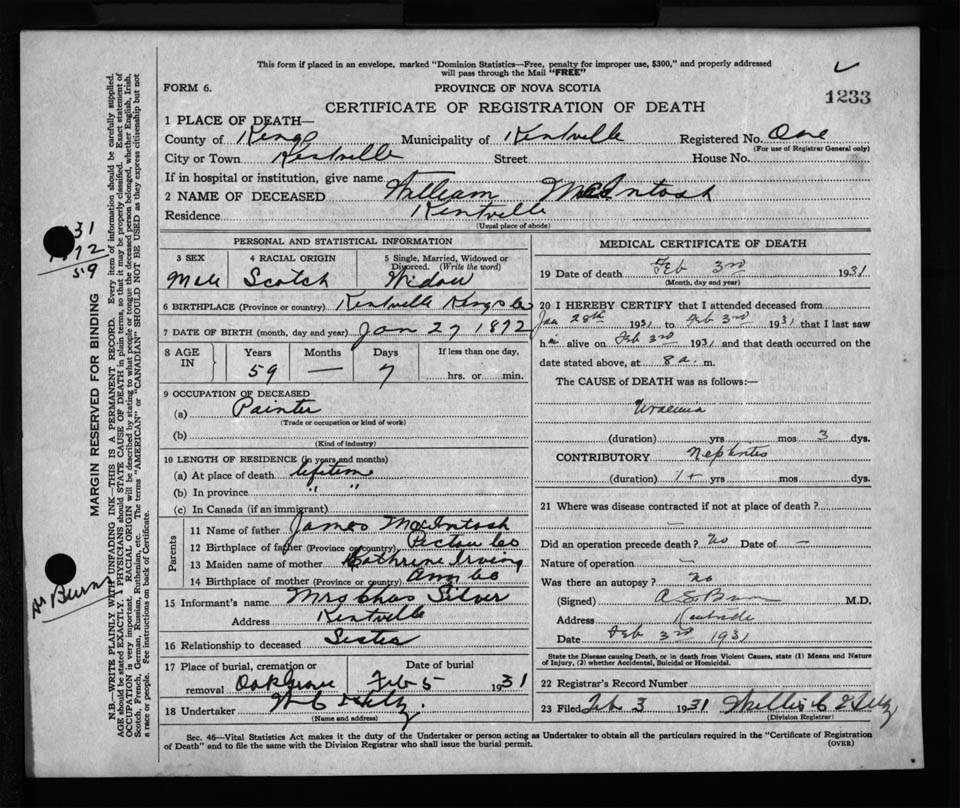 This form if placed in an envelope, marked "Dominion Statistics—Free, penalty for improper use, $300," and properly addressed
will pass through the Mail "FREE"
FORM 6. PROVINCE OF NOVA SCOTIA
1233
CERTIFICATE OF REGISTRATION OF DEATH
1 PLACE OF DEATH—
County of Kings Municipality of Kentville Registered No. One
(For use of Registrar General only)
City or Town Kentville Street House No.
If in hospital or institution, give name
2 NAME OF DECEASED William MacIntosh
Residence Kentville
(Usual place of abode)
PERSONAL AND STATISTICAL INFORMATION
3 SEX 4 RACIAL ORIGIN 5 Single, Married, Widowed or Divorced. (Write the word)
Male Scotch Widow
6 BIRTHPLACE (Province or country) Kentville Kings Co
7 DATE OF BIRTH (month, day and year) Jan 27 1872
8 AGE IN Years Months Days If less than one day,
59 — 7 hrs. or min.
9 OCCUPATION OF DECEASED
(a) Painter
(Trade or occupation or kind of work)
(b)
(Kind of industry)
10 LENGTH OF RESIDENCE (in years and months)
(a) At place of death lifetime
(b) In province " "
(c) In Canada (if an immigrant)
Parents
11 Name of father James MacIntosh
12 Birthplace of father (Province or country) Pictou Co
13 Maiden name of mother Kathrine Irving
14 Birthplace of mother (Province or country) Co
15 Informant's name Mrs Chas Silver
Address Kentville
16 Relationship to deceased Sister
17 Place of burial, cremation or removal Date of burial
Oak Grove Feb 5 1931
18 Undertaker
(Name and address)
MEDICAL CERTIFICATE OF DEATH
19 Date of death Feb 3rd 1931
(Month, day and year)
20 I HEREBY CERTIFY that I attended deceased from
Jan 28th 1931 to Feb 3rd 1931 that I last saw
him alive on Feb 3rd 1931 and that death occurred on the
date stated above, at 8 a. m.
The CAUSE OF DEATH was as follows:—
Uraemia
(duration) yrs mos 3 dys.
CONTRIBUTORY Nephritis
(duration) 1+ yrs mos dys.
21 Where was disease contracted if not at place of death?
—
Did an operation precede death? No Date of —
Nature of operation —
Was there an autopsy? No
(Signed) M.D.
Address Kentville
Date Feb 3rd 1931
State the Disease causing Death, or in death from Violent Causes, state (1) Means and Nature
of Injury, (2) whether Accidental, Suicidal or Homicidal.
22 Registrar's Record Number
23 Filed Feb 3 1931
(Division Registrar)
Sec. 46—Vital Statistics Act makes it the duty of the Undertaker or person acting as Undertaker to obtain all the particulars required in the "Certificate of Registration
of Death" and to file the same with the Division Registrar who shall issue the burial permit. (OVER)
MARGIN RESERVED FOR BINDING
N.B.—WRITE PLAINLY WITH UNFADING INK—THIS IS A PERMANENT RECORD. Every item of information should be carefully supplied.
AGE should be stated EXACTLY. PHYSICIANS should STATE CAUSE OF DEATH in plain terms, so that it may be properly classified. Exact statement of
OCCUPATION is very important. RACIAL ORIGIN will be described by stating to what people or tongue the deceased person belonged, whether English, Irish,
Scotch, French, German, Russian, Ruthenian, etc. The terms "AMERICAN" or "CANADIAN" SHOULD NOT BE USED as they express citizenship but not
a race or people. See instructions on back of Certificate.
31
72
59